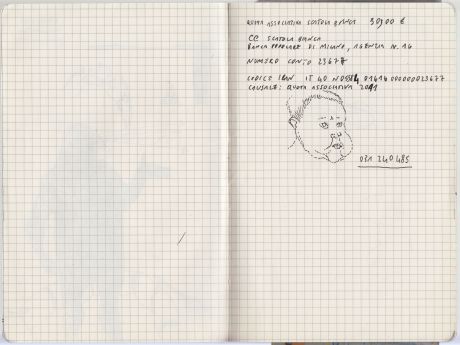 QUOTA ASSOCIATIVA SCATOLA BIANCA 30,00 €
CC SCATOLA BIANCA
BANCA POPOLARE DI MILANO, AGENZIA N. 14
NUMERO CONTO 23677
CODICE IBAN IT 40
CAUSALE: QUOTA ASSOCIATIVA 2011
031 240 485